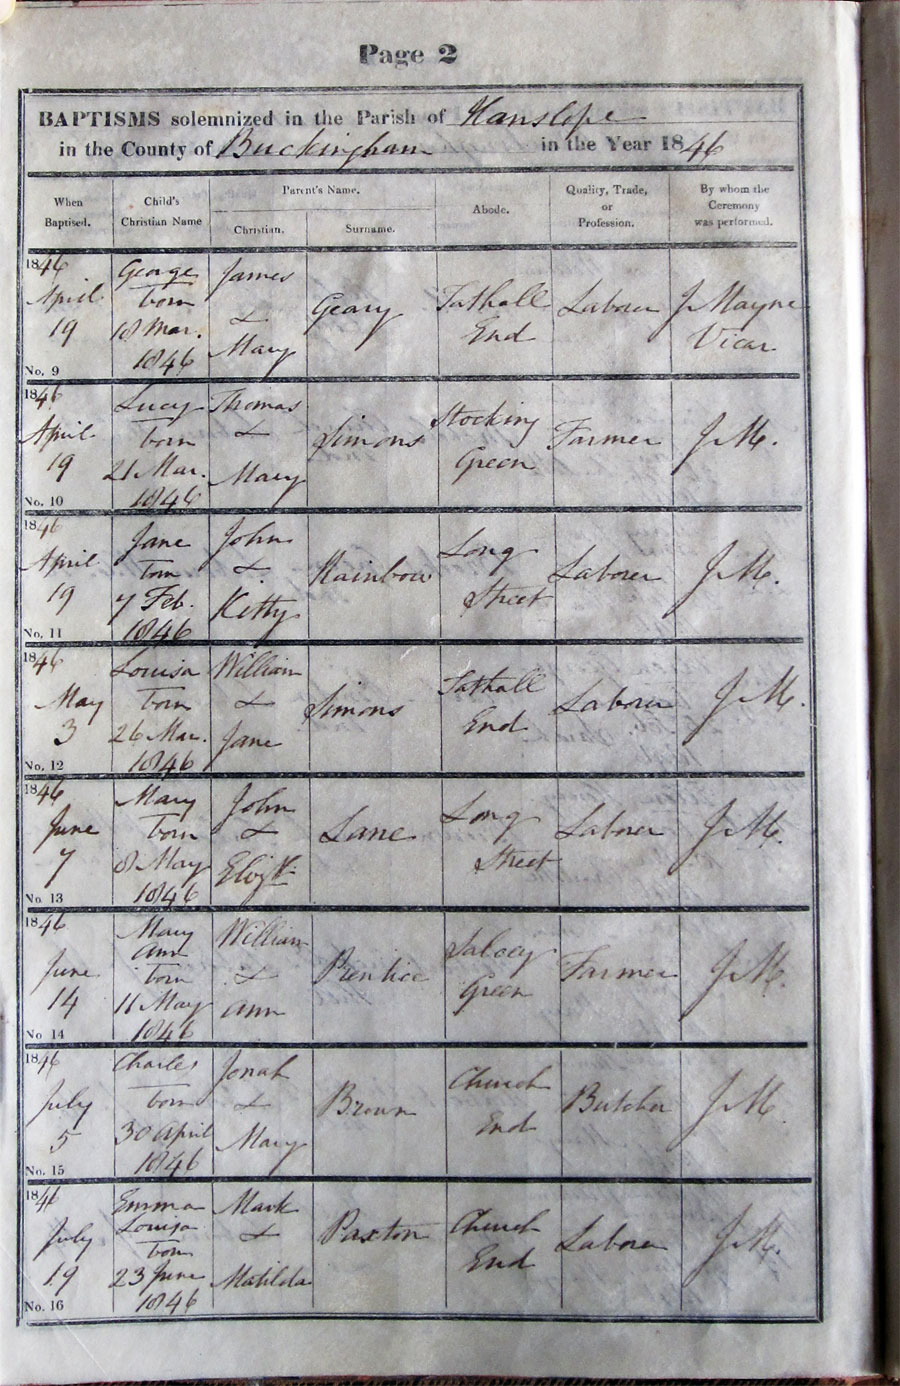 Page 2
BAPTISMS solemnized in the Parish of Hanslope
in the County of Buckingham in the Year 1846
When Baptised.
Child's Christian Name
Parent's Name.
Christian.
Surname.
Abode.
Quality, Trade, or Profession.
By whom the Ceremony was performed.
1846
April
19
No. 9
George
born
18 Mar.
1846
James
&
Mary
Geary
Tathall
End
Laborer
J Mayne
Vicar
1846
April
19
No. 10
Lucy
born
21 Mar.
1846
Thomas
&
Mary
Simons
Stocking
Green
Farmer
J. M.
1846
April
19
No. 11
Jane
born
7 Feb.
1846
John
&
Kitty
Rainbow
Long
Street
Laborer
J. M.
1846
May
3
No. 12
Louisa
born
26 Mar.
1846
William
&
Jane
Simons
Tathall
End
Laborer
J M.
1846
June
7
No. 13
Mary
born
8 May
1846
John
&
Eliz.th
Lane
Long
Street
Laborer
J. M.
1846
June
14
No 14
Mary
Ann
born
11 May
1846
William
&
Ann
Prentice
Salcey
Green
Farmer
J M.
1846
July
5
No. 15
Charles
born
30 April
1846
Jonah
&
Mary
Brown
Church
End
Butcher
J M.
1846
July
19
No. 16
Emma
Louisa
born
23 June
1846
Mark
&
Matilda
Paxton
Church
End
Laborer
J. M.